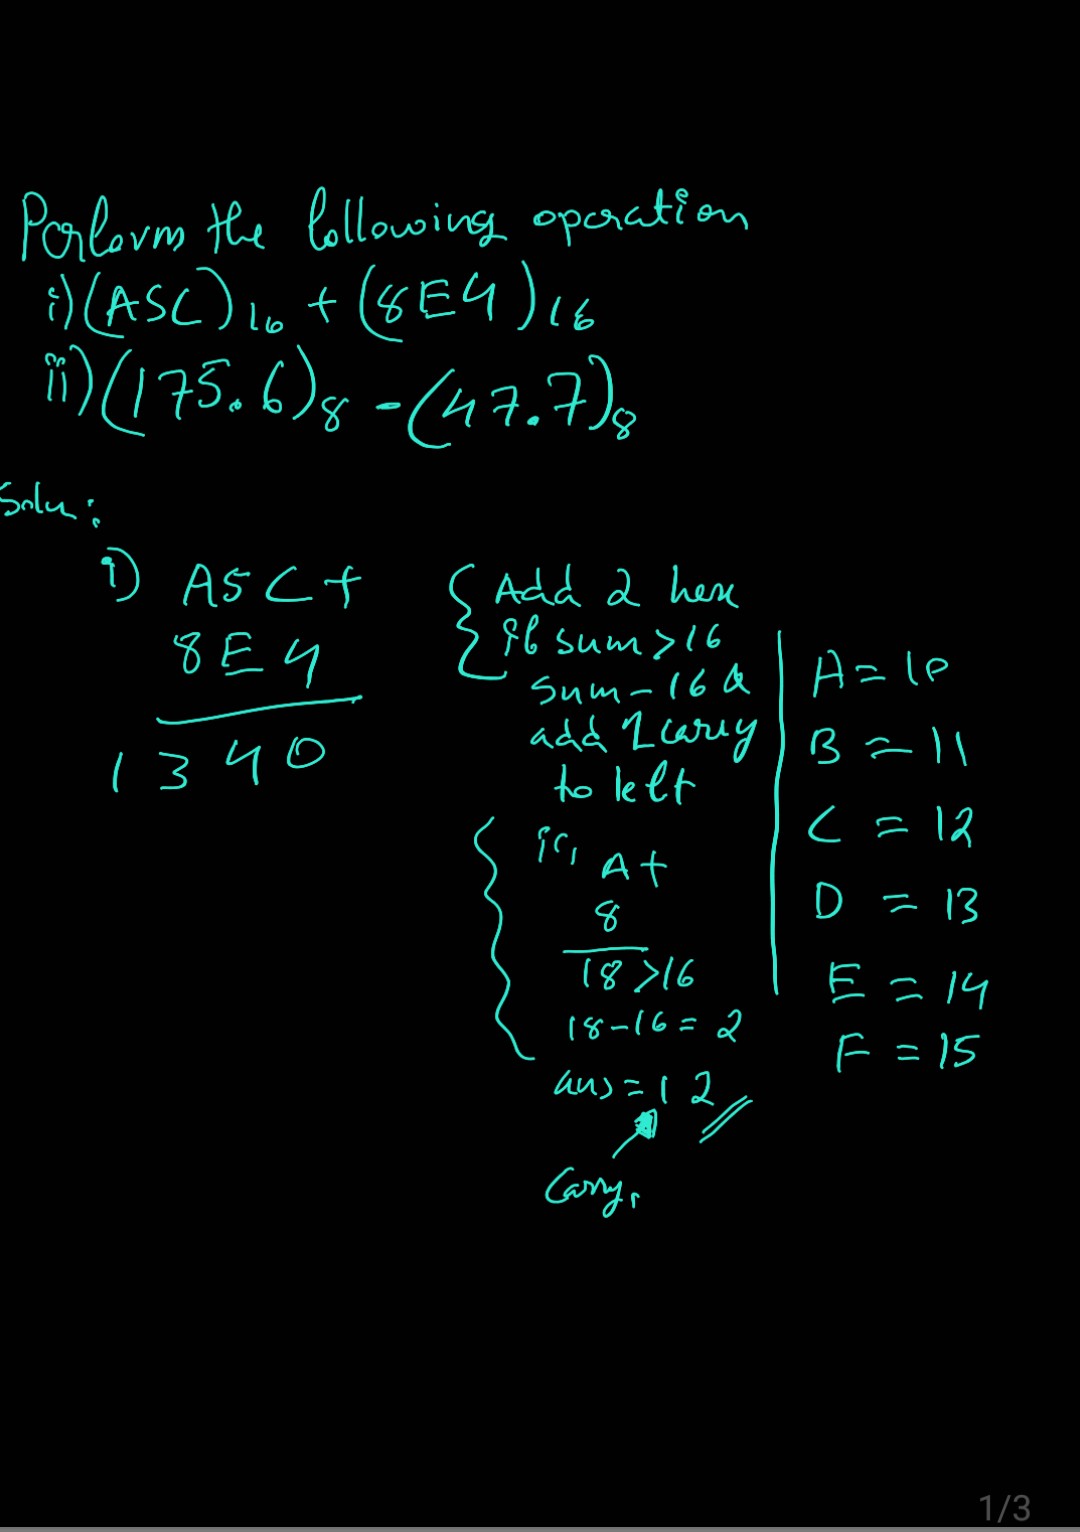 Perform the following operation
i) (A5C)16 + (8E4)16
ii) (175.6)8 - (47.7)8
Soln:
i) A5C+
8E4
1340
{ Add 2 here
if sum > 16
sum - 16 &
add 1 carry
to left
ie, A+
8
18 > 16
18 - 16 = 2
ans = 1 2
Carry,
A = 10
B = 11
C = 12
D = 13
E = 14
F = 15
1/3